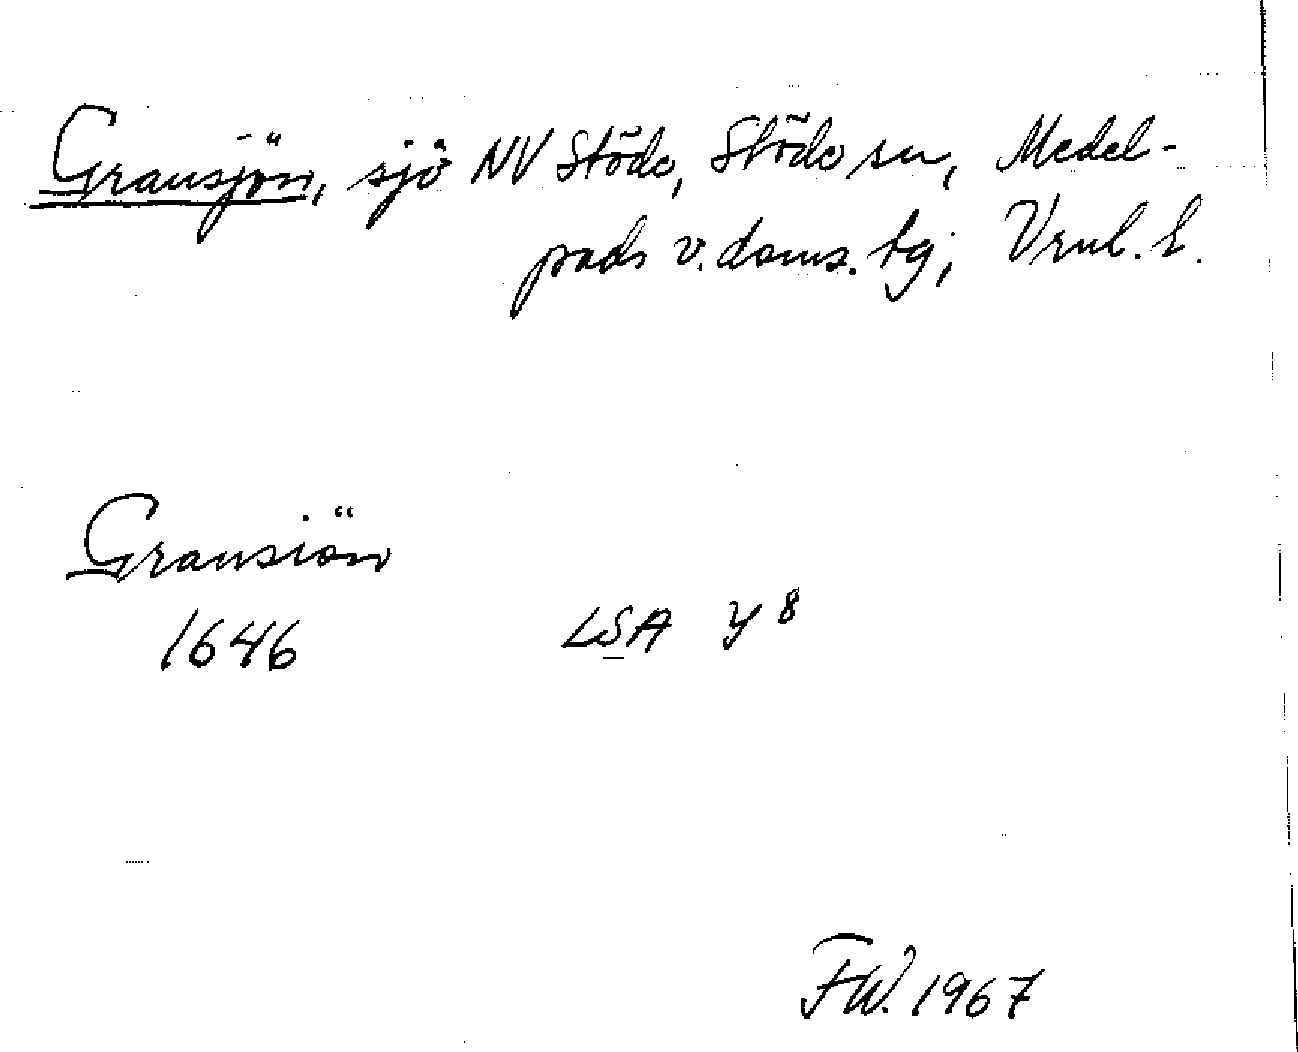 Gransjön, sjö NV Stöde, Stöde sn, Medel-
pads v. doms. tg; Vrnl. l.
Gransiön
1646 LSA Y 8
FW. 1967